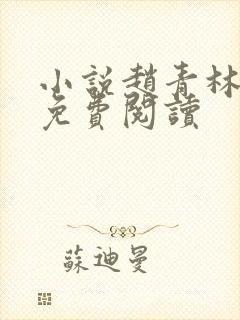 小說趙青林
免費閱讀
蘇迪曼